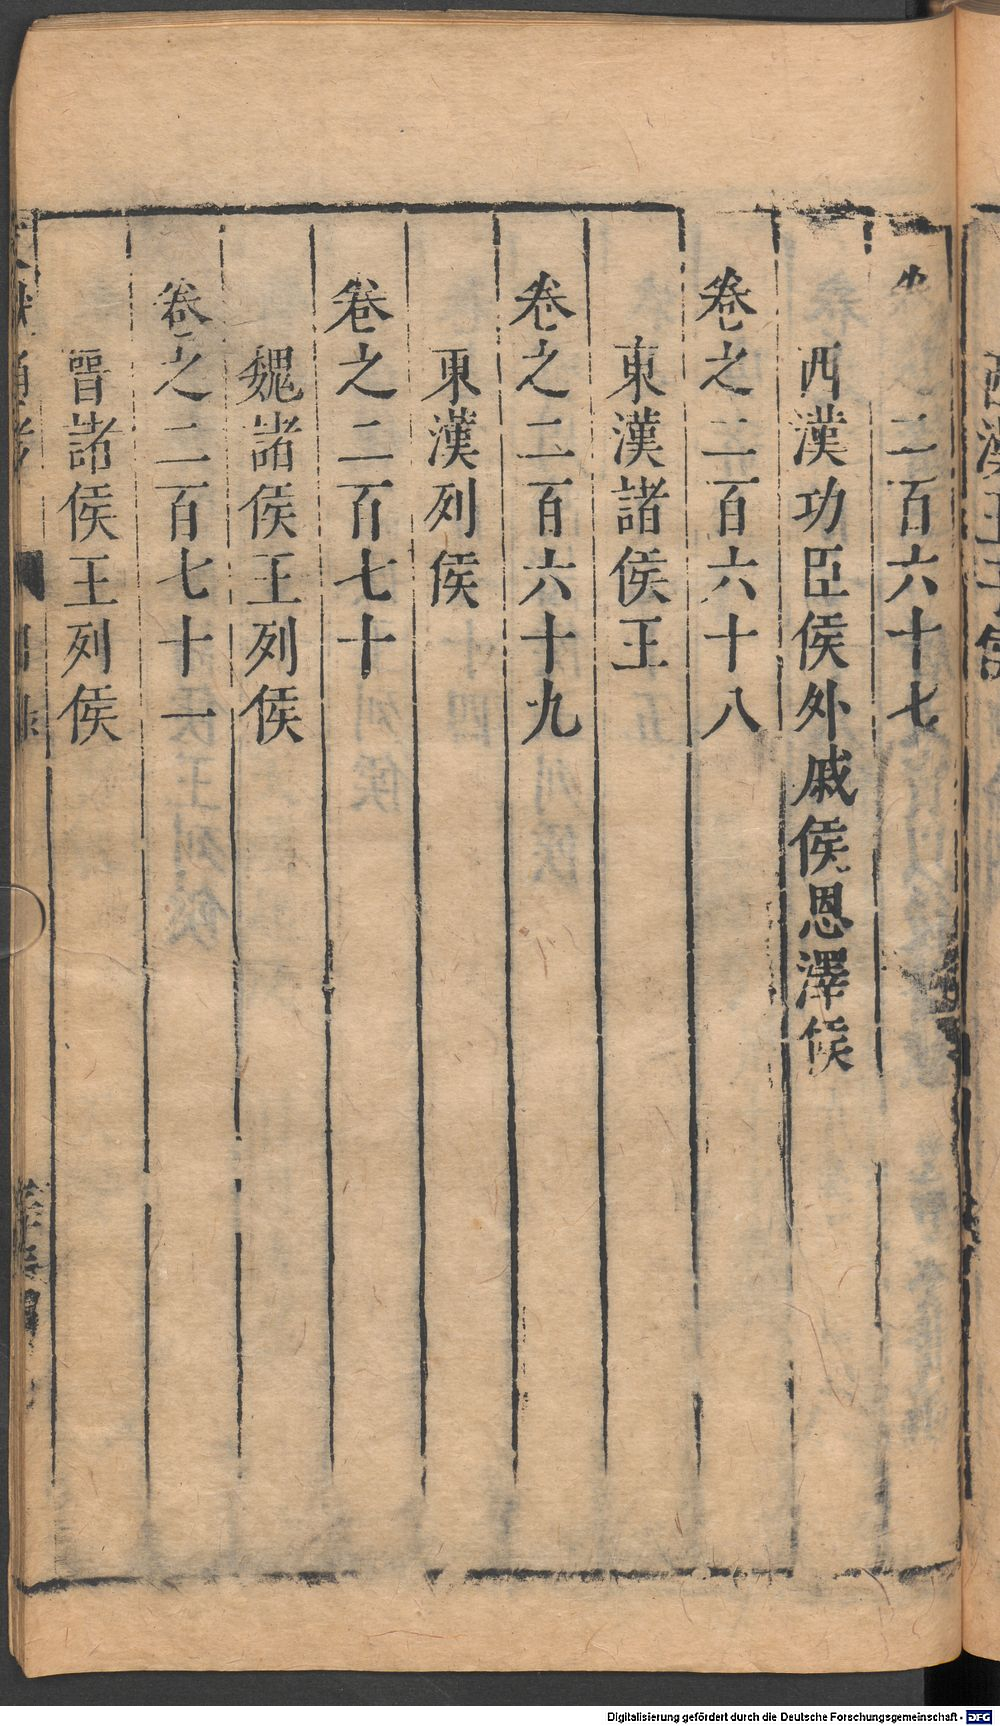 二百六十七
西漢功臣侯外戚侯恩澤侯
卷之二百六十八
東漢諸侯王
卷之二百六十九
東漢列侯
卷之二百七十
魏諸侯王列侯
卷之二百七十一
晋諸侯王列侯
Digitalisierung gefördert durch die Deutsche Forschungsgemeinschaft - DFG